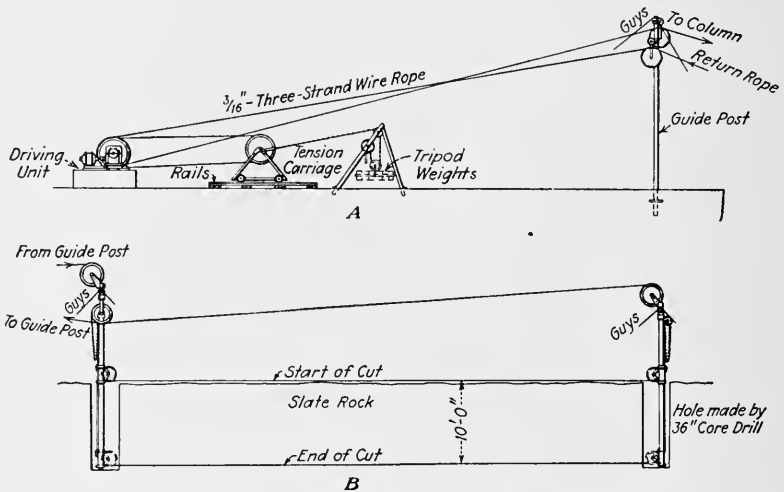 Guys
To Column
Return Rope
3/16"-Three-Strand Wire Rope
Guide Post
Driving
Unit
Rails
Tension
Carriage
Tripod
Weights
A
From Guide Post
Guys
To Guide Post
Guys
Start of Cut
Slate Rock
10'-0"
Hole made by
36" Core Drill
End of Cut
B